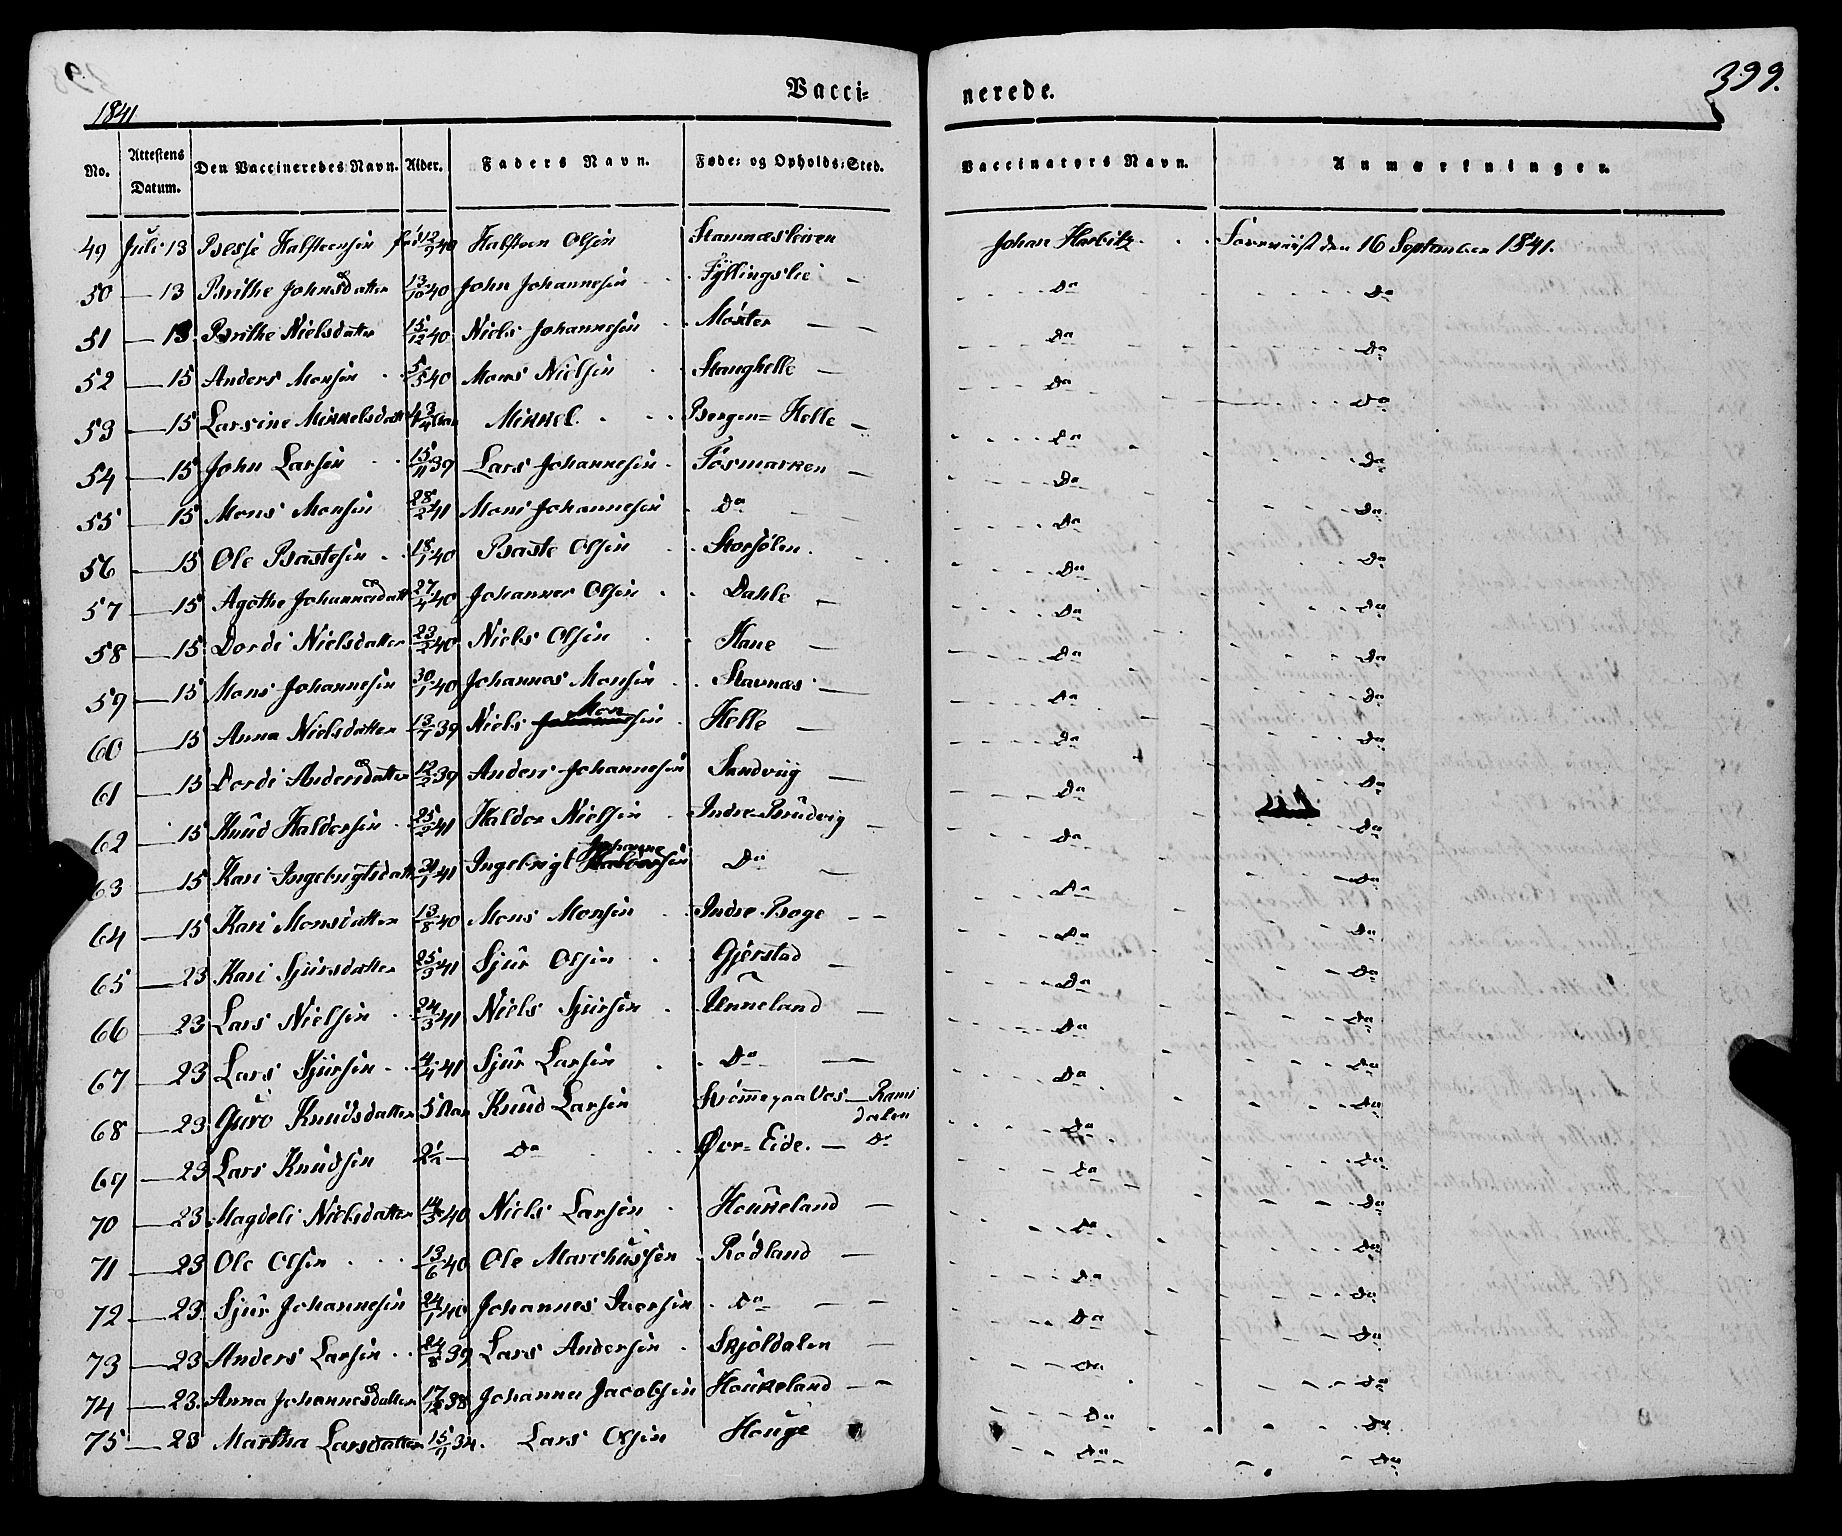 Vacci= nerede. 399.
1841
No. Attestens Datum. Den Vaccineredes Navn. Alder. Faders Navn. Føde= og Opholds=Sted. Vaccinators Navn. Anmærkninger.
49 Juli 13 Halsteensen 12/9 40 Halsteen Olsen Stamnæsleiren Johan Herbitz den 16 September 1841.
50 — 13 Brithe Johnsdatter 13/10 40 John Johannesen Fyllingslie — Do Do
51 — 13 Brithe Nielsdatter 15/12 40 Niels Johannesen Moster — Do Do
52 — 15 Anders Monsen 5/5 40 Mons Nielsen Stanghelle — Do Do
53 — 15 Larsine Mikkelsdatter Mikkel Bergen= Helle — Do Do
54 — 15 John Larsen 15/11 39 Lars Johannesen Fosmarken — Do Do
55 — 15 Mons Monsen 28/2 41 Mons Johannesen Do — Do Do
56 — 15 Ole Bastesen 18/1 40 Baste Olsen Storsølen Do Do
57 — 15 Agathe Johannesdatter 27/4 40 Johannes Olsen Dahle — Do Do
58 — 15 Dordi Nielsdatter 23/2 40 Niels Olsen Hane — Do Do
59 — 15 Mons Johannesen 30/1 40 Johannes Monsen Stavnæs — Do Do
60 — 15 Anna Nielsdatter 13/7 39 Niels Monsen Helle — Do Do
61 — 15 Dordi Andersdatter 12/2 39 Anders Johannesen Sandviig — Do Do
62 15 Knud Haldorsen 25/2 41 Haldor Nielsen Indre=Brudvig — Do Do
63 15 Kari Ingebrigtsdatter 41 Ingebrigt Johannesen Do — Do Do
64 — 15 Kari Monsdatter 13/8 40 Mons Monsen Indre Boge — Do Do
65 — 23 Kari Sjursdatter 25/3 41 Sjur Olsen Gjerstad — Do Do
66 — 23 Lars Nielsen 24/3 41 Niels Sjursen Unneland — Do Do
67 — 23 Lars Sjursen 4/4 41 Sjur Larsen Do — Do Do
68 — 23 Guro Knudsdatter 5 Aar Knud Larsen paa Vos — Do Do
dalen
69 — 23 Lars Knudsen 2 1/2 — Do Øvr= Eide. — Do Do Do
70 — 23 Magdeli Nielsdatter 14/3 40 Niels Larsen Houkeland — Do Do
71 — 23 Ole Olsen 13/6 40 Ole Marchussen Rødland — Do Do
72 — 23 Sjur Johannesen 24/1 40 Johannes Iversen Do — Do Do
73 — 23 Anders Larsen 24/8 39 Lars Andersen Skjoldalen — Do Do
74 — 23 Anna Johannesdatter 17/12 38 Johannes Jacobsen Houkeland — Do Do
75 — 23 Martha Larsdatter 15/11 34. Lars Olsen Houge Do Do